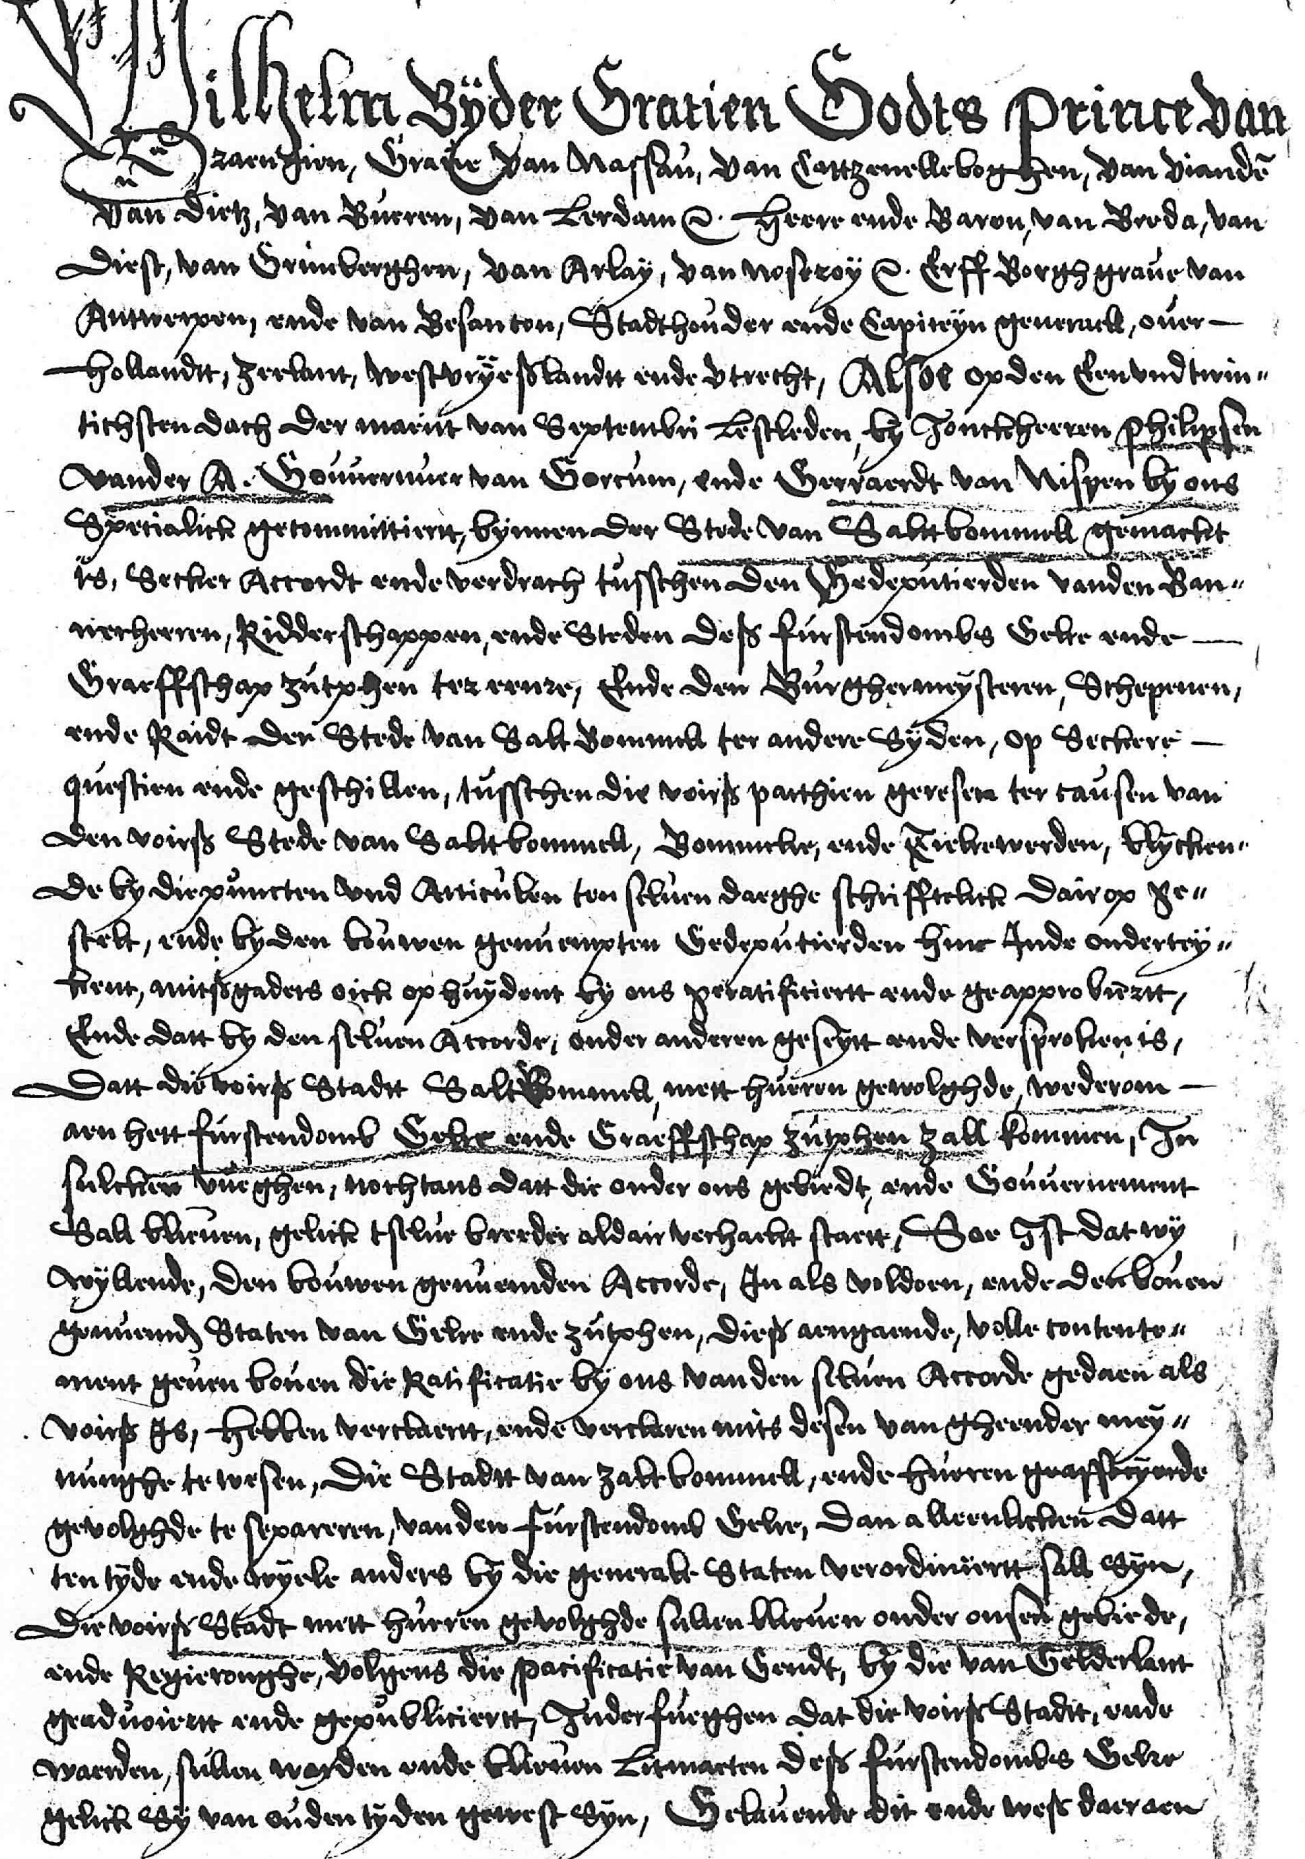 Wilhelm Bÿder Gratien Godts Prince van
Oraengien, Graue van Nassau, van Cattzenelleboghen, van Viandē
van Dietz, van Bueren, van Lerdam &. Heere ende Baron, van Breda, van
Diest, van Grimberghen, van Arlaÿ, van Noseroÿ &. Erff Borghgraue van
Antwerpen, ende van Besancon, Stadthouder ende Capiteÿn generaell, ouer
Hollandtt, Zeelant, Westvrÿeßlandtt ende Vtrecht, Alsoe op den Eenvndtwin-
tichsten dach der maent van Septembri lestleden, bÿ Jonckheeren Philipsen
vander A. Gouverneuer van Gorcum, ende Gerraerdt van Nispen bÿ ons
Specialick gecommittiertt, bynnen der Stede van Saltbommell gemackt
is, Secker Accordt ende verdrach tusschen den Gedeputierden vanden Ban-
nerheeren, Ridderschappen, ende Steden deß furstendombs Gelre ende
Graeffschap Zutphen ter eenre, Ende den Burghermeÿsteren, Schepenen,
ende Raidt der Stede van Salt Bommell ter andere Sÿden, op Seckere
questien ende geschillen, tusschen die voirß parthien geresen ter causen van
den voirß Stede van Saltbommell, Bommelre, ende Tielrewerden, blÿcken-
de bÿ die puncten vnd Articulen ten seluen daeghe schrifftelick dair op ge-
stelt, ende bÿ den bouwen genuempten Gedeputierden hinc Inde ondertey-
kent, mitßgaders oick op huÿdent bÿ ons geratificiertt ende geapprobiertt,
Ende datt bÿ den seluen Accorde, onder anderen geseÿtt ende versproken is,
Datt die voirß Stadtt Saltbommell, mett hueren gevolghde, wederom
aen hett furstendomb Gelre ende Graeffschap Zutphen zall kommen, In
sulcken vueghen, nochtans datt die onder ons gebiedt, ende Gouvernement
Sall blieuen, gelick tselue breeder aldair verhaelt staett, Soe Ist dat wÿ
wÿllende, den bouwen genuemden Accorde, In als voldoen, ende den bouen
genuemdē Staten van Gelre ende Zutphen, dieß aengaende, volle contente-
ment geuen bouen die Ratificatie bÿ ons vanden seluen Accorde gedaen als
voirß Is, Hebben verclaertt, ende verclaren mits desen van gheender meÿ-
nunghe te wesen, Die Stadtt van Zaltbommell, ende hueren
gevolghde te separeren, van den furstendomb Gelre, Dan alleenlicken datt
ten tÿde ende wÿele anders bÿ die generale Staten verordiniertt sall Sÿn,
Die voirß Stadt mett hueren gevolghde sullen blieuen onder onsen gebiede,
ende Regieronghe, volgens die Pacificatie van Gendt, bÿ die van Gelderlant
geaduoiertt ende gepubliciertt, Inder fueghen dat die voirß Stadtt, ende
waerden, sullen worden ende blieuen Litmaeten deß furstendombs Gelre
gelick Sÿ van ouden tÿden gewest Sÿn, Gelauende dit ende weß daeraen